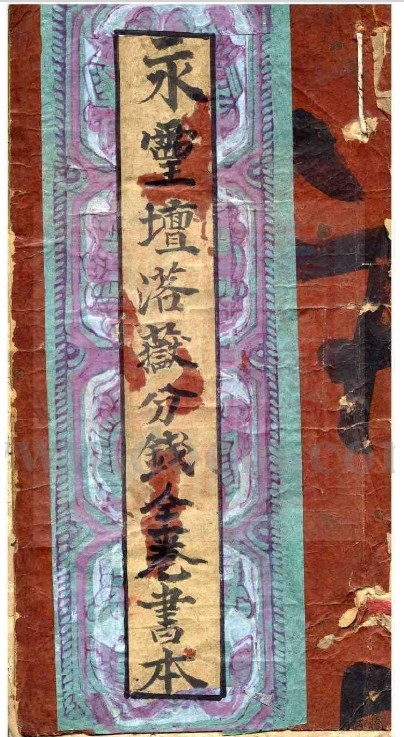 永靈壇落嶽分錢全卷書本